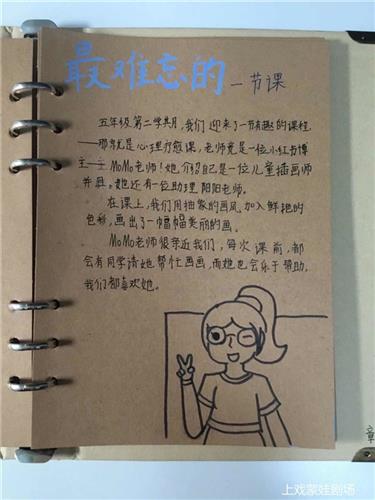 最难忘的一节课
五年级第二学期,我们迎来了一节有趣的课程
——那就是心理疗愈课,老师竟是一位小红书博
主——MoMo老师!她介绍自己是一位儿童插画师
并且。她还有一位助理阳阳老师。
在课上,我们用抽象的画风,加入鲜艳的
色彩,画出了一幅幅美丽的画。
MoMo老师很亲近我们,每次课前,都
会有同学请她帮忙画画,而她也会乐于帮助,
我们都喜欢她。
章
上戏蒙娃剧场